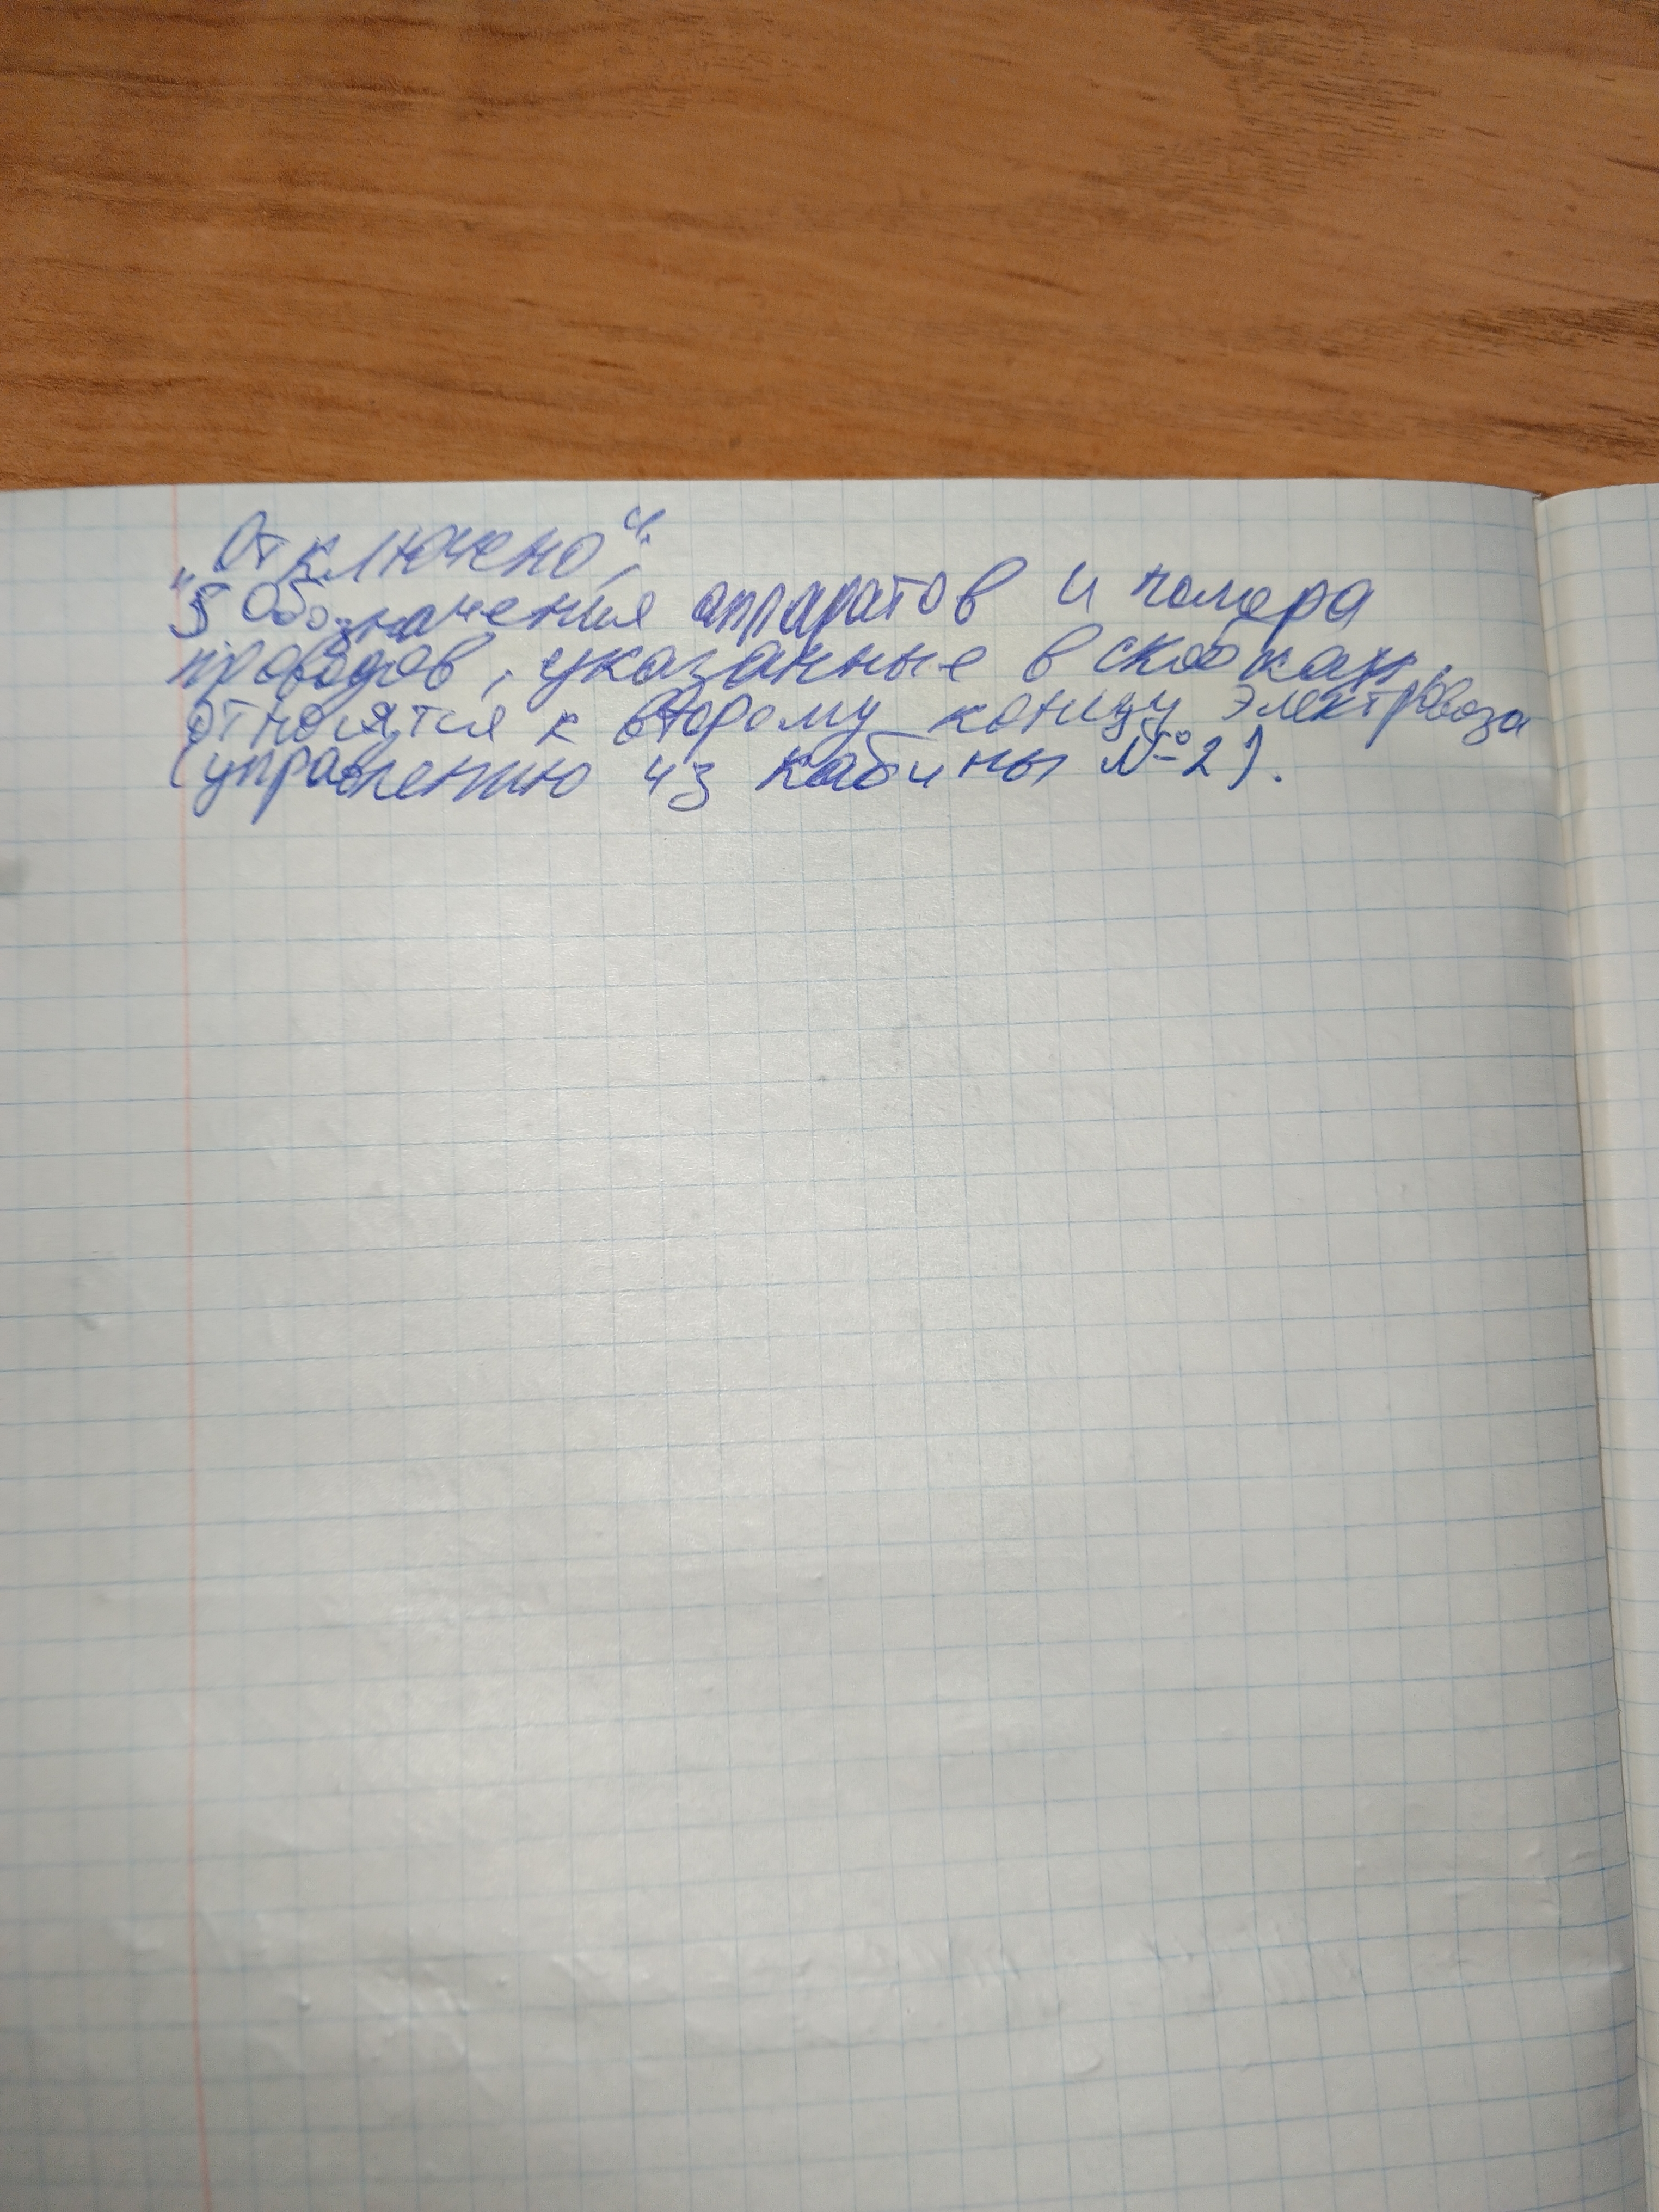 „Отключено“;
5 Обозначения аппаратов и номера
проводов, указанные в скобках,
относятся к второму концу электровоза
(управлению из кабины №2).